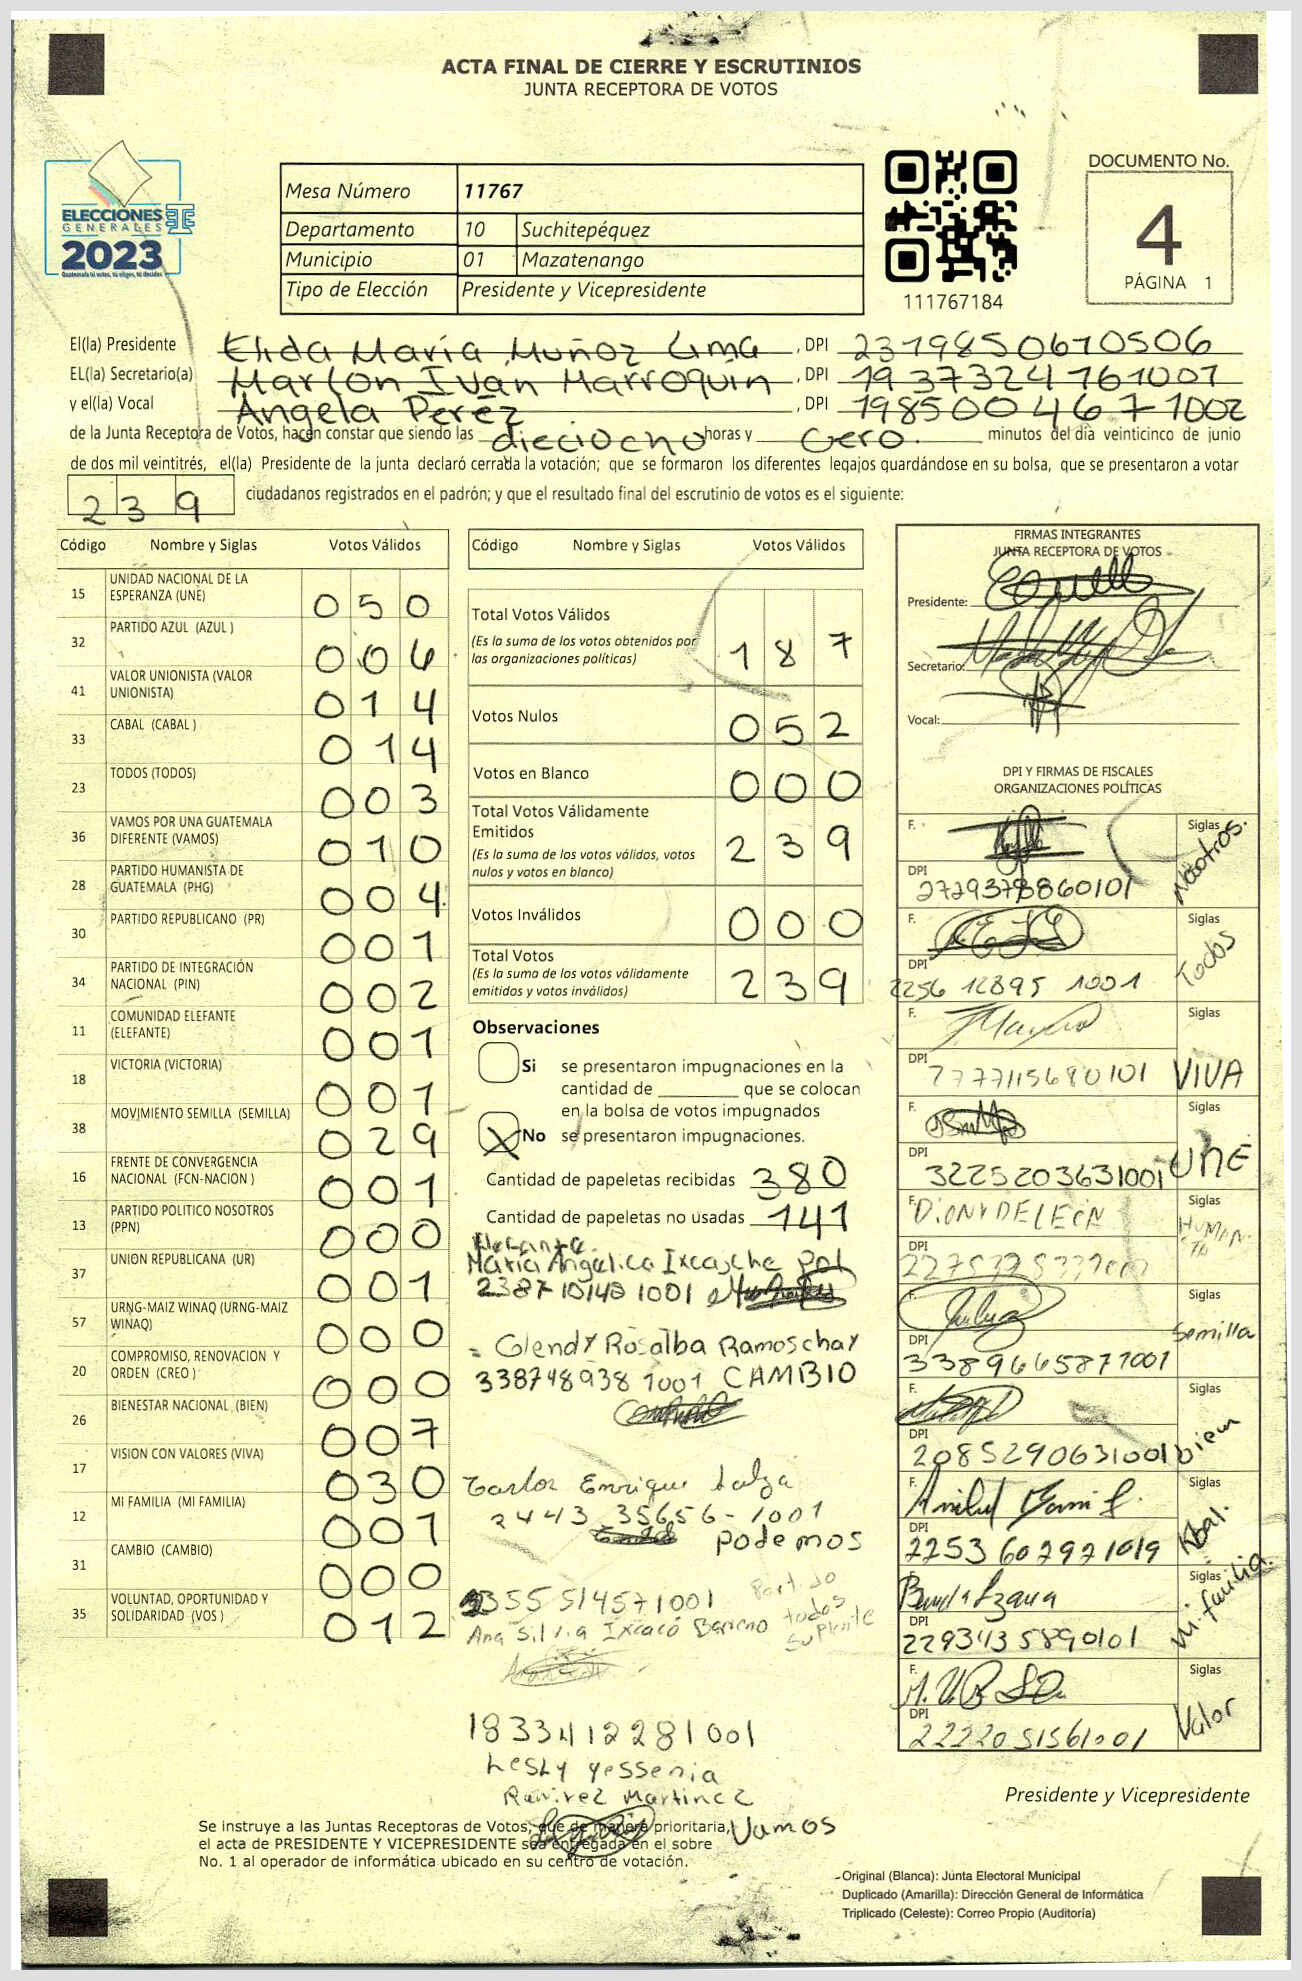 ACTA FINAL DE CIERRE Y ESCRUTINIOS
JUNTA RECEPTORA DE VOTOS
ELECCIONES
GENERALES
2023
Guatemala tú votas, tú eliges, tú decides
Mesa Número 11767
Departamento 10 Suchitepéquez
Municipio 01 Mazatenango
Tipo de Elección Presidente y Vicepresidente
111767184
DOCUMENTO No.
4
PÁGINA 1
El(la) Presidente Elida María Muñoz Lima, DPI 2319850610506
EL(la) Secretario(a) Marlon Iván Marroquín, DPI 1937324761001
y el(la) Vocal Angela Peréz, DPI 1985004671002
de la Junta Receptora de Votos, hacen constar que siendo las dieciocho horas y Cero. minutos del día veinticinco de junio
de dos mil veintitrés, el(la) Presidente de la junta declaró cerrada la votación; que se formaron los diferentes legajos guardándose en su bolsa, que se presentaron a votar
239 ciudadanos registrados en el padrón; y que el resultado final del escrutinio de votos es el siguiente:
Código Nombre y Siglas Votos Válidos
15 UNIDAD NACIONAL DE LA ESPERANZA (UNE) 050
32 PARTIDO AZUL (AZUL ) 006
41 VALOR UNIONISTA (VALOR UNIONISTA) 014
33 CABAL (CABAL ) 014
23 TODOS (TODOS) 003
36 VAMOS POR UNA GUATEMALA DIFERENTE (VAMOS) 010
28 PARTIDO HUMANISTA DE GUATEMALA (PHG) 004
30 PARTIDO REPUBLICANO (PR) 001
34 PARTIDO DE INTEGRACIÓN NACIONAL (PIN) 002
11 COMUNIDAD ELEFANTE (ELEFANTE) 001
18 VICTORIA (VICTORIA) 001
38 MOVIMIENTO SEMILLA (SEMILLA) 029
16 FRENTE DE CONVERGENCIA NACIONAL (FCN-NACION ) 001
13 PARTIDO POLITICO NOSOTROS (PPN) 000
37 UNION REPUBLICANA (UR) 001
57 URNG-MAIZ WINAQ (URNG-MAIZ WINAQ) 000
20 COMPROMISO, RENOVACION Y ORDEN (CREO ) 000
26 BIENESTAR NACIONAL (BIEN) 007
17 VISION CON VALORES (VIVA) 030
12 MI FAMILIA (MI FAMILIA) 001
31 CAMBIO (CAMBIO) 000
35 VOLUNTAD, OPORTUNIDAD Y SOLIDARIDAD (VOS ) 012
Código Nombre y Siglas Votos Válidos
Total Votos Válidos 187
(Es la suma de los votos obtenidos por
las organizaciones políticas)
Votos Nulos 052
Votos en Blanco 000
Total Votos Válidamente
Emitidos 239
(Es la suma de los votos válidos, votos
nulos y votos en blanco)
Votos Inválidos 000
Total Votos 239
(Es la suma de los votos válidamente
emitidos y votos inválidos)
Observaciones
Si se presentaron impugnaciones en la
cantidad de ________ que se colocan
en la bolsa de votos impugnados
X No se presentaron impugnaciones.
Cantidad de papeletas recibidas 380
Cantidad de papeletas no usadas 141
Elefante.
María Angelica Ixcasche
2387 10148 1001
= Glendy Rosalba Ramoschay
338748938 1001 CAMBIO
Carlos Enrique
2443 35656-1001
Podemos
2355514571001 Partido
Ana Silvia Ixcacó Barreno todos
suplente
1833412281001
Lesly Yessenia
Ramirez Martinez
Vamos
FIRMAS INTEGRANTES
JUNTA RECEPTORA DE VOTOS
Presidente:
Secretario:
Vocal:
DPI Y FIRMAS DE FISCALES
ORGANIZACIONES POLÍTICAS
F. Siglas Nosotros.
DPI 2729378860101
F. Siglas Todos
DPI 2256 12895 1001
F. Siglas VIVA
DPI 7777115680101
F. Siglas UNE
DPI 3225203631001
F. DIONY DE LEON Siglas HUMANISTA
DPI
F. Siglas Semilla
DPI 3389665871001
F. Siglas biem
DPI 2085290631001
F. Siglas Kbal.
DPI 2253602921019
F. Siglas Mi familia.
DPI 2293435890101
F. Siglas Valor
DPI 2222051561001
Presidente y Vicepresidente
Se instruye a las Juntas Receptoras de Votos, que de manera prioritaria,
el acta de PRESIDENTE Y VICEPRESIDENTE sea entregada en el sobre
No. 1 al operador de informática ubicado en su centro de votación.
Original (Blanca): Junta Electoral Municipal
Duplicado (Amarilla): Dirección General de Informática
Triplicado (Celeste): Correo Propio (Auditoría)